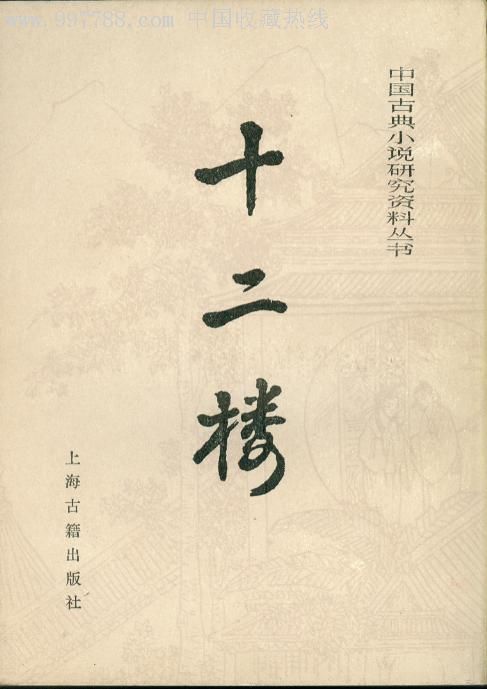 www.997788.com 中国收藏热线
中国古典小说研究资料丛书
十二楼
上海古籍出版社